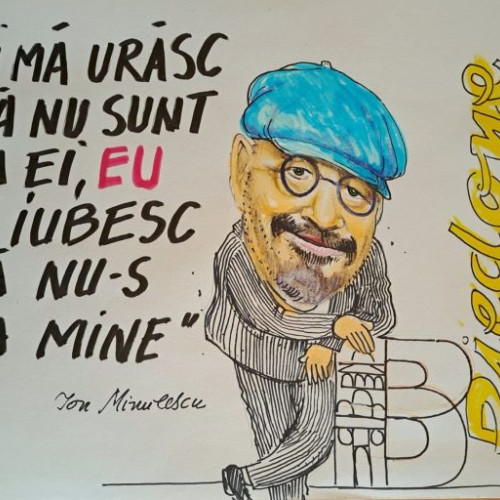 MĂ URĂSC
NU SUNT
EI, EU
IUBESC
NU-S
MINE"
Ion Minulescu
B